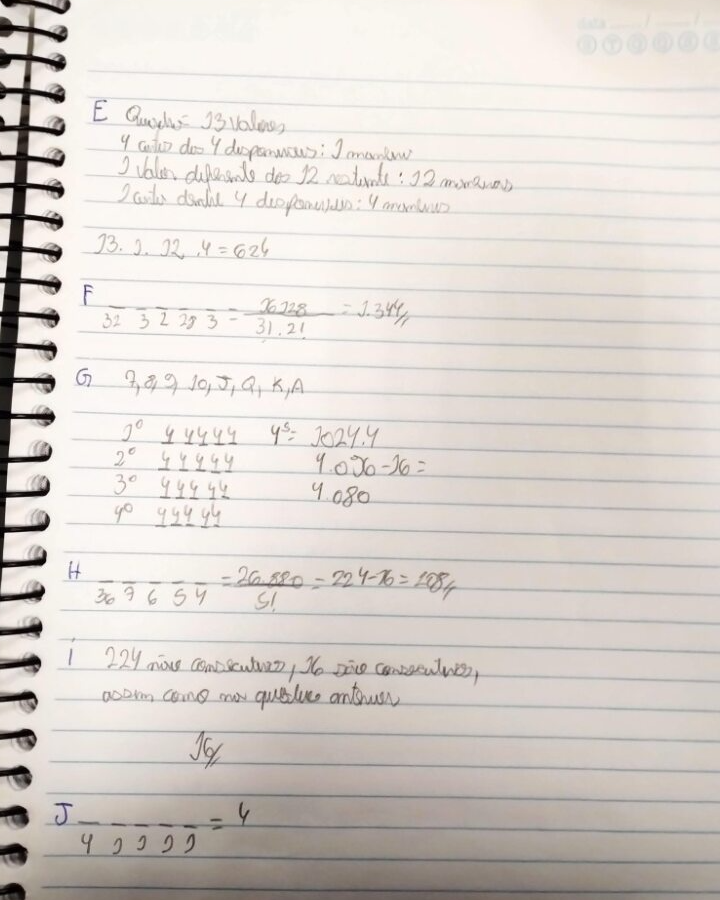 data / /
E Quadra= 13 valores
4 cartas das 4 disponíveis: 1 maneira
1 valor diferente dos 12 restante: 12 maneiras
1 carta dentre 4 disponíveis: 4 maneiras
13. 1. 12. 4 = 624
F _ _ _ _ _ = 16128 / 3!.2! = 1.344//
32 3 2 28 3
G 7,8,9, 10, J, Q, K, A
1º 4 4 4 4 4 4⁵= 1024.4
2º 4 4 4 4 4 4.096-16=
3º 4 4 4 4 4 4.080
4º 4 4 4 4 4
H _ _ _ _ _ = 26.880 / 5! = 224-16= 208//
7 6 5 4
i 224 não consecutivos, 16 são consecutivos,
assim como na questão anterior
16//
J _ _ _ _ _ = 4
4 1 1 1 1